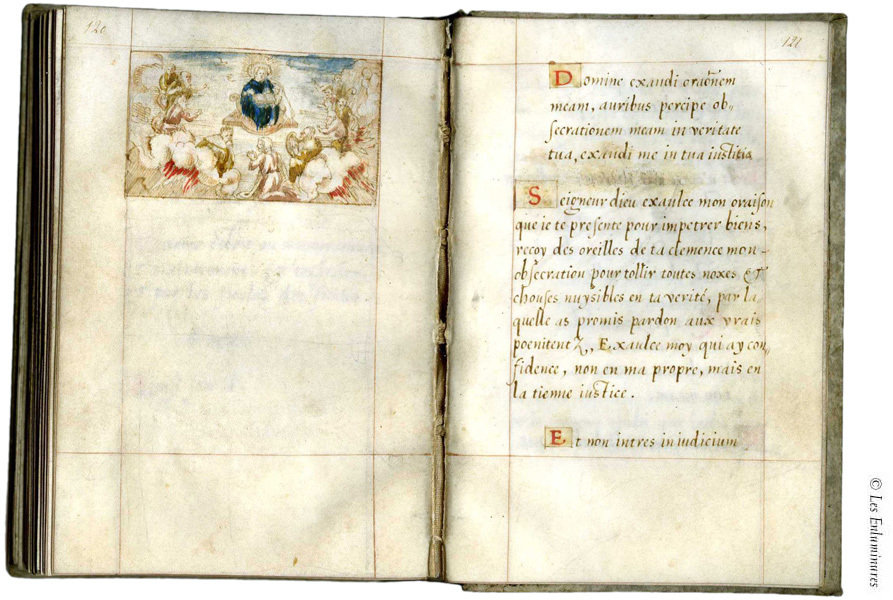 120
121
Domine exaudi oraõnem
meam, auribus percipe ob„
secrationem meam in veritate
tua, exaudi me in tua iustitia
Seigneur dieu exaulce mon oraison
que ie te presente pour impetrer biens,
recoy des oreilles de ta clemence mon-
obsecration pour tollir toutes noxes &
chouses nuysibles en ta verité, par la
quelle as promis pardon aux vrais
poenitent, Exaulce moy qui ay con„
fidence, non en ma propre, mais en
la tienne iustice.
Et non intres in iudicium
© Les Enluminures